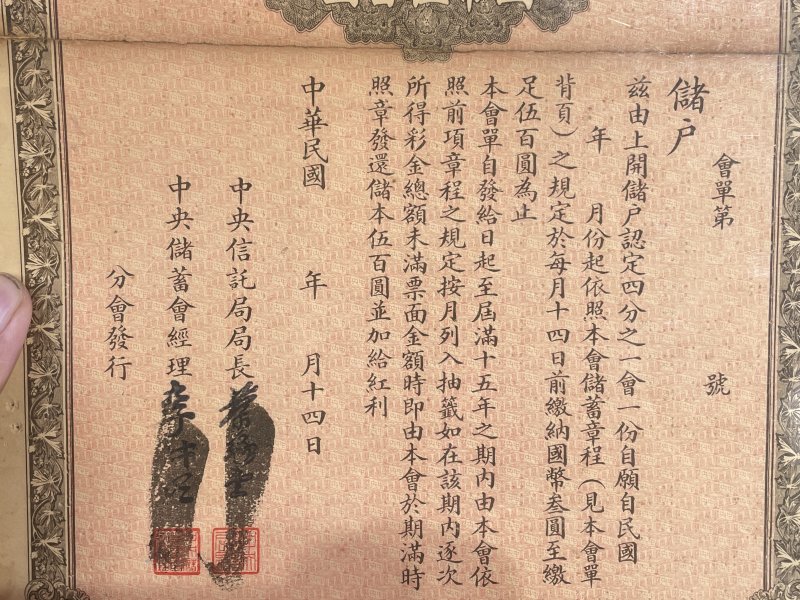 會單第 號
儲戶
茲由上開儲戶認定四分之一會一份自願自民國
年 月份起依照本會儲蓄章程（見本會單
背頁）之規定於每月十四日前繳納國幣叁圓至繳
足伍百圓為止
本會單自發給日起至屆滿十五年之期內由本會依
照前項章程之規定按月列入抽籤如在該期內逐次
所得彩金總額未滿票面金額時即由本會於期滿時
照章發還儲本伍百圓並加給紅利
中華民國 年 月十四日
中央信託局局長
中央儲蓄會經理
分會發行